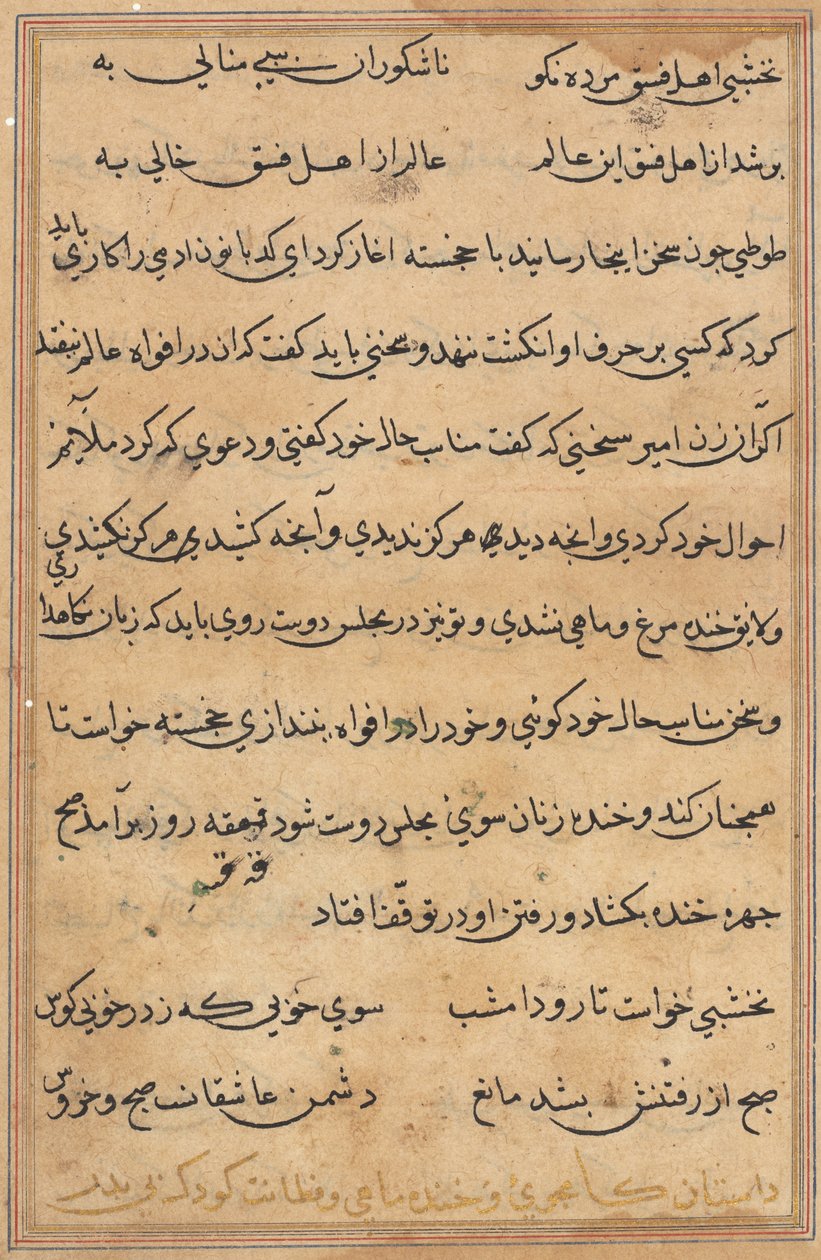 نخشبي اهل فسق مرده نكو ناشكوران سي منالي به
بر شد از اهل فسق اين عالم عالم از اهل فسق خالي به
طوطي جون سخن اينجا رسانيد با خجسته اغاز كرد اي كدبانو ن ادمي را كاري بايد
كرد كه كسي بر حرف او انكشت ننهد و سخني بايد كفت كه ان در افواه عالم نيفتد
اكر ان زن امير سخني كه كفت مناسب حال خود كفتي و دعوي كه كرد ملايم
احوال خود كردي وانجه ديدي هركز نديدي وآنجه كشيدي هركز نكشيدي
ولايق خنده مرغ و ماهي نشدي و تو نيز در مجلس دوست روي بايد كه زبان نكاهداري
و سخن مناسب حال خود كوئي و خود را در افواه نيندازي خجسته خواست تا
همجنان كند و خنده زنان سوئ مجلس دوست شود قهقه روز برآمد صبح
جهره خنده بكشاد و رفتن او در توقّف افتاد
نخشبي خواست تا رود امشب سوي خوبي كه زد در خوبي كوس
صبح از رفتنش بشد مانع دشمن عاشقانست صبح و خروس
داستان كامجوئ و خنده ماهي و فطانت كودك بي پدر